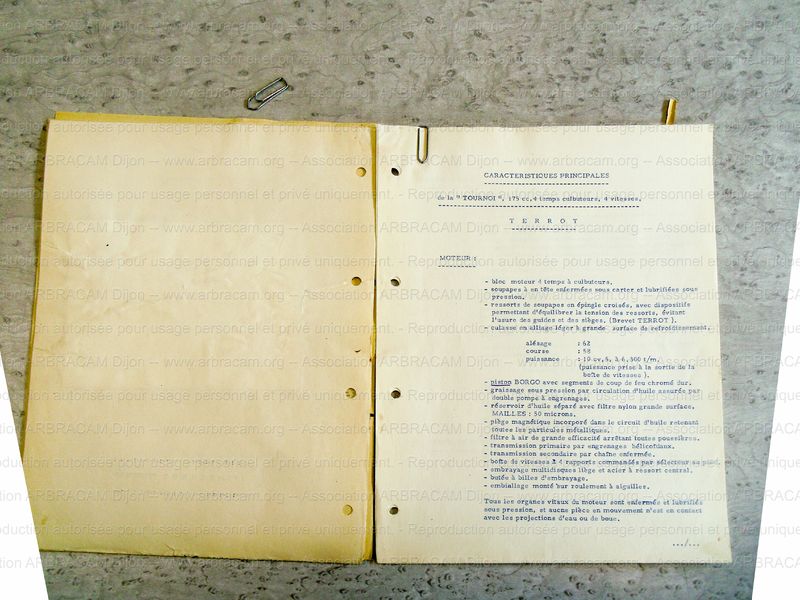 CARACTERISTIQUES PRINCIPALES
de la " TOURNOI ", 175 cc, 4 temps culbuteurs, 4 vitesses.
T E R R O T
MOTEUR :
- bloc moteur 4 temps à culbuteurs.
- soupapes à en tête enfermées sous carter et lubrifiées sous
pression.
- ressorts de soupapes en épingle croisés, avec dispositif
permettant d'équilibrer la tension des ressorts, évitant
l'usure des guides et des sièges. (Brevet TERROT ).
- culasse en alliage léger à grande surface de refroidissement.
alésage : 62
course : 58
puissance : 10 cv,5, à 6,500 t/m.
(puissance prise à la sortie de la
boîte de vitesses ).
- piston BORGO avec segments de coup de feu chromé dur.
- graissage sous pression par circulation d'huile assurée par
double pompe à engrenages.
- réservoir d'huile séparé avec filtre nylon grande surface.
MAILLES : 50 microns.
- piège magnétique incorporé dans le circuit d'huile retenant
toutes les particules métalliques.
- filtre à air de grande efficacité arrêtant toutes poussières.
- transmission primaire par engrenages hélicoïdaux.
- transmission secondaire par chaîne enfermée.
- boîte de vitesses à 4 rapports commandés par sélecteur au pied.
- embrayage multidisques liège et acier à ressort central.
- butée à billes d'embrayage.
- embiellage monté sur roulement à aiguilles.
Tous les organes vitaux du moteur sont enfermés et lubrifiés
sous pression, et aucune pièce en mouvement n'est en contact
avec les projections d'eau ou de boue.
.../...
Association ARBRACAM Dijon -- www.arbracam.org --
Reproduction autorisée pour usage personnel et privé uniquement. -